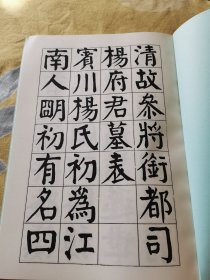 清故參將銜都司
楊府君墓表
賓川楊氏初為江
南人明初有名四